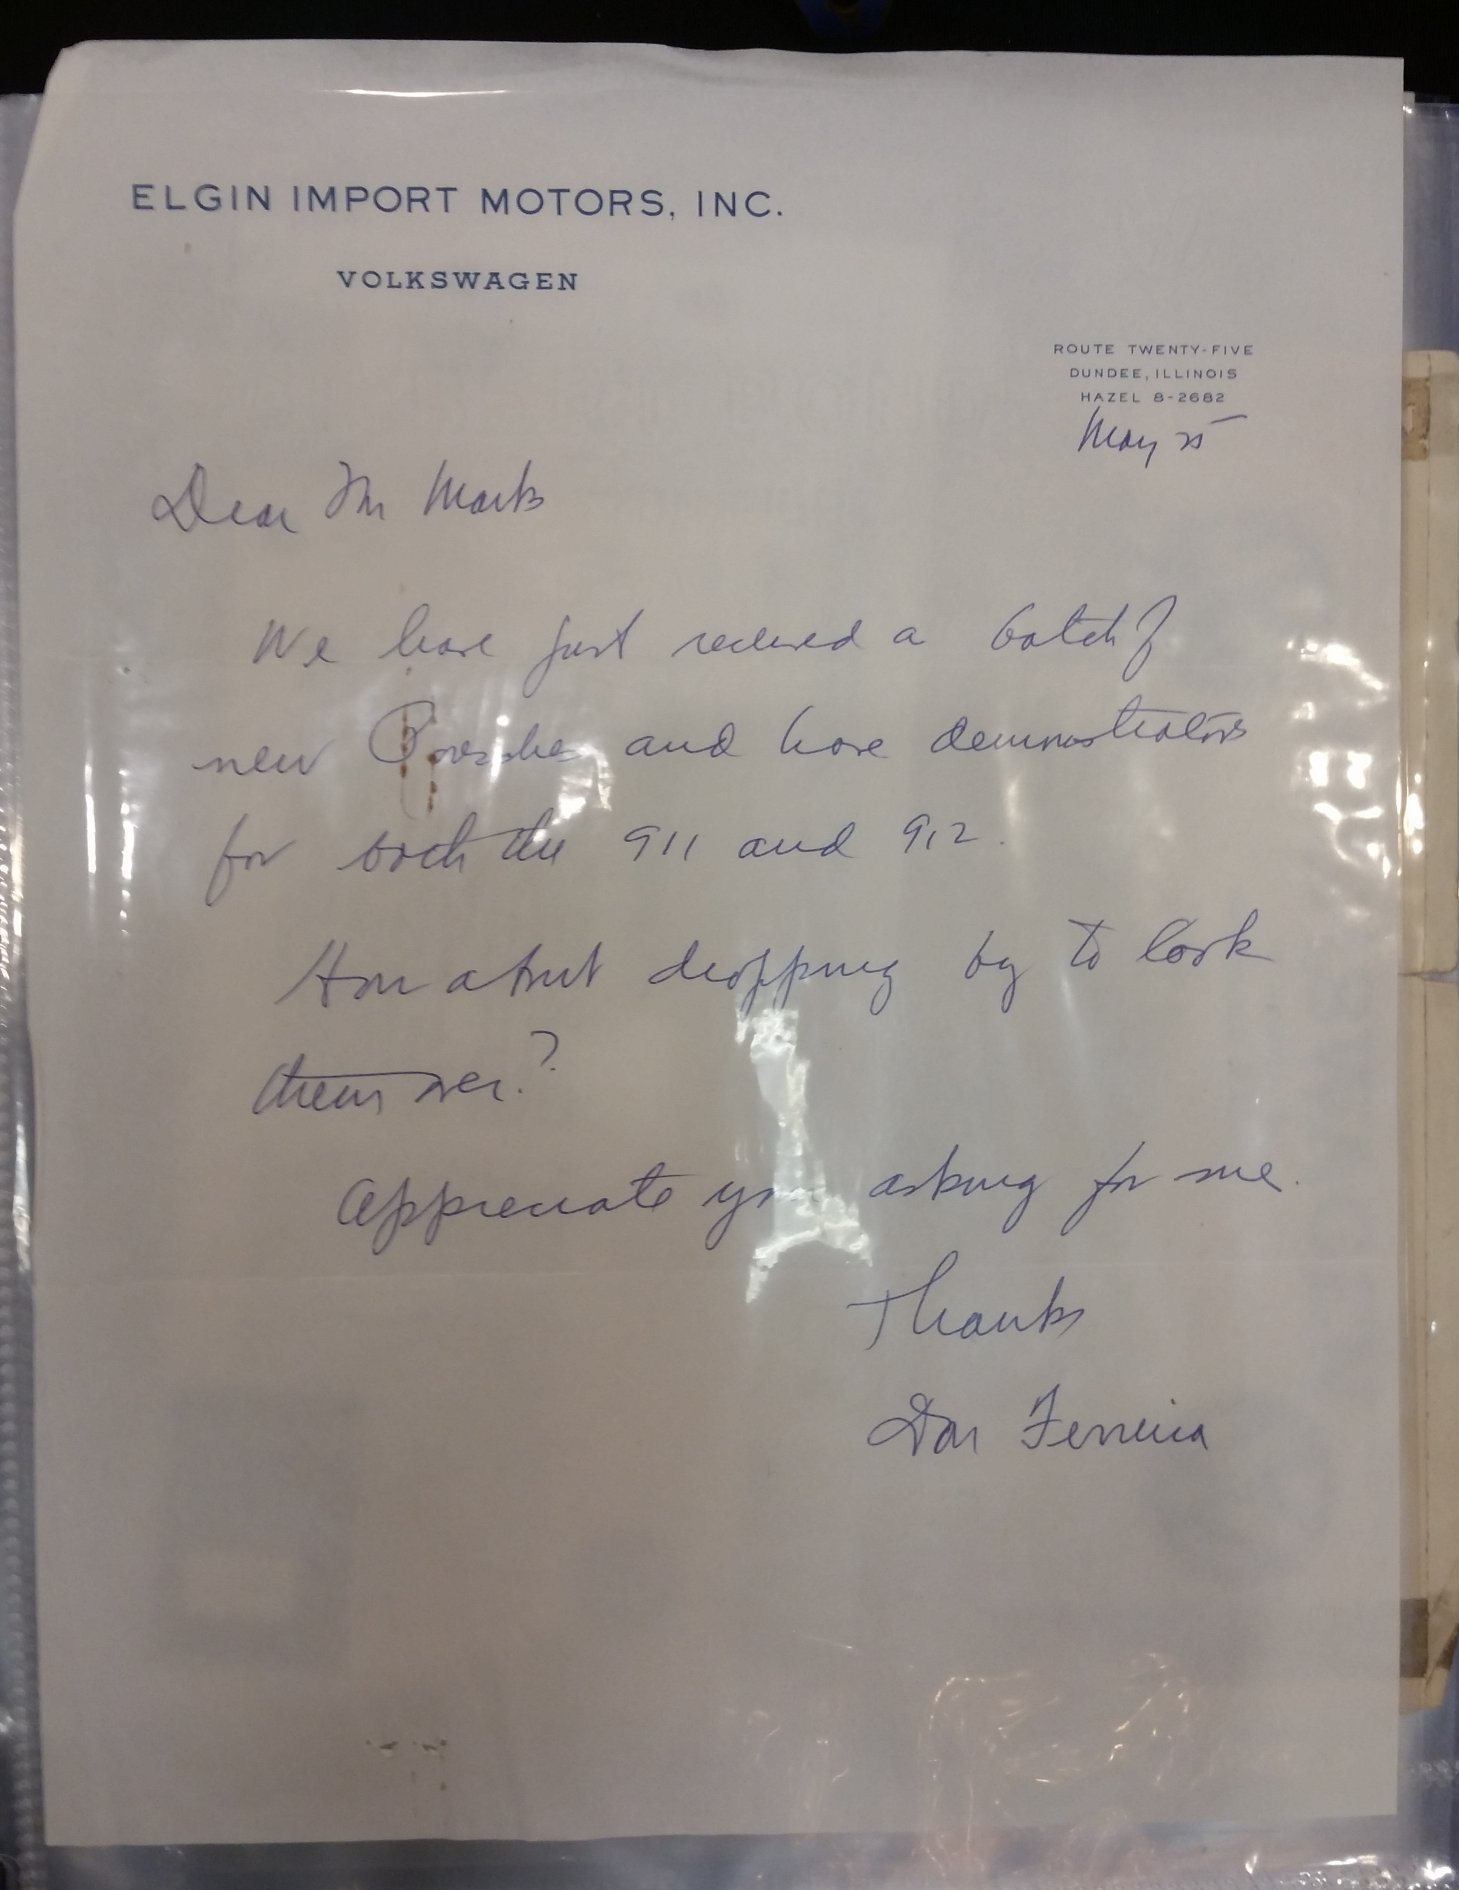 ELGIN IMPORT MOTORS, INC.
VOLKSWAGEN
ROUTE TWENTY-FIVE
DUNDEE, ILLINOIS
HAZEL 8-2682
May 25
Dear Mr Marks
We have just received a batch of
new Porsches and have demonstrators
for both the 911 and 912.
How about dropping by to look
them over.?
Appreciate you asking for me.
Thanks
Don Ferreira